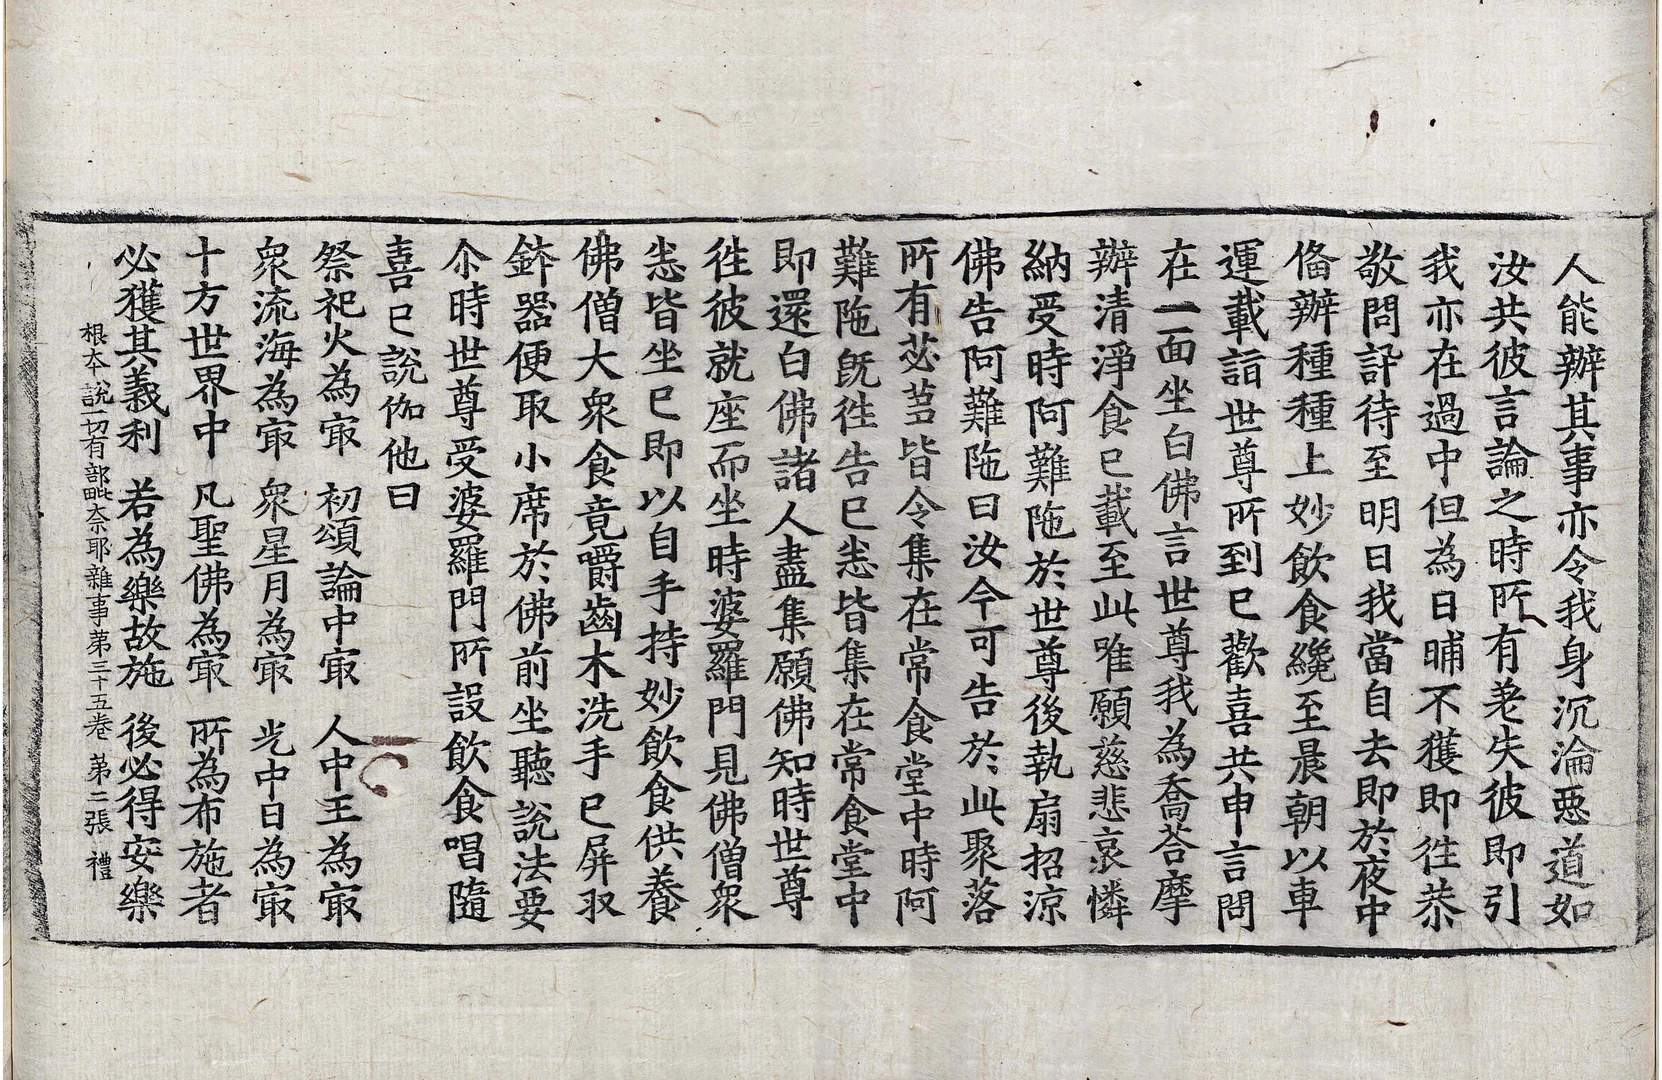 人能辦其事亦令我身沉淪惡道如
汝共彼言論之時所有差失彼即引
我亦在過中但為日晡不獲即徃恭
敬問訊待至明日我當自去即於夜中
俻辦種種上妙飲食纔至晨朝以車
運載詣世尊所到已歡喜共申言問
在一面坐白佛言世尊我為喬荅摩
辦清淨食已載至此唯願慈悲哀憐
納受時阿難陁於世尊後執扇招涼
佛告阿難陁曰汝今可告於此聚落
所有苾芻皆令集在常食堂中時阿
難陁旣徃告已悉皆集在常食堂中
即還白佛諸人盡集願佛知時世尊
徃彼就座而坐時婆羅門見佛僧衆
悉皆坐已即以自手持妙飲食供養
佛僧大衆食竟嚼齒木洗手已屏収
鉢器便取小席於佛前坐聽說法要
尒時世尊受婆羅門所設飲食唱隨
喜已說伽他曰
祭祀火為㝡　初頌論中㝡　人中王為㝡
衆流海為㝡　衆星月為㝡　光中日為㝡
十方世界中　凡聖佛為㝡　所為布施者
必獲其義利　若為樂故施　後必得安樂
根本說一切有部毗奈耶雜事苐三十五卷　苐二張　禮